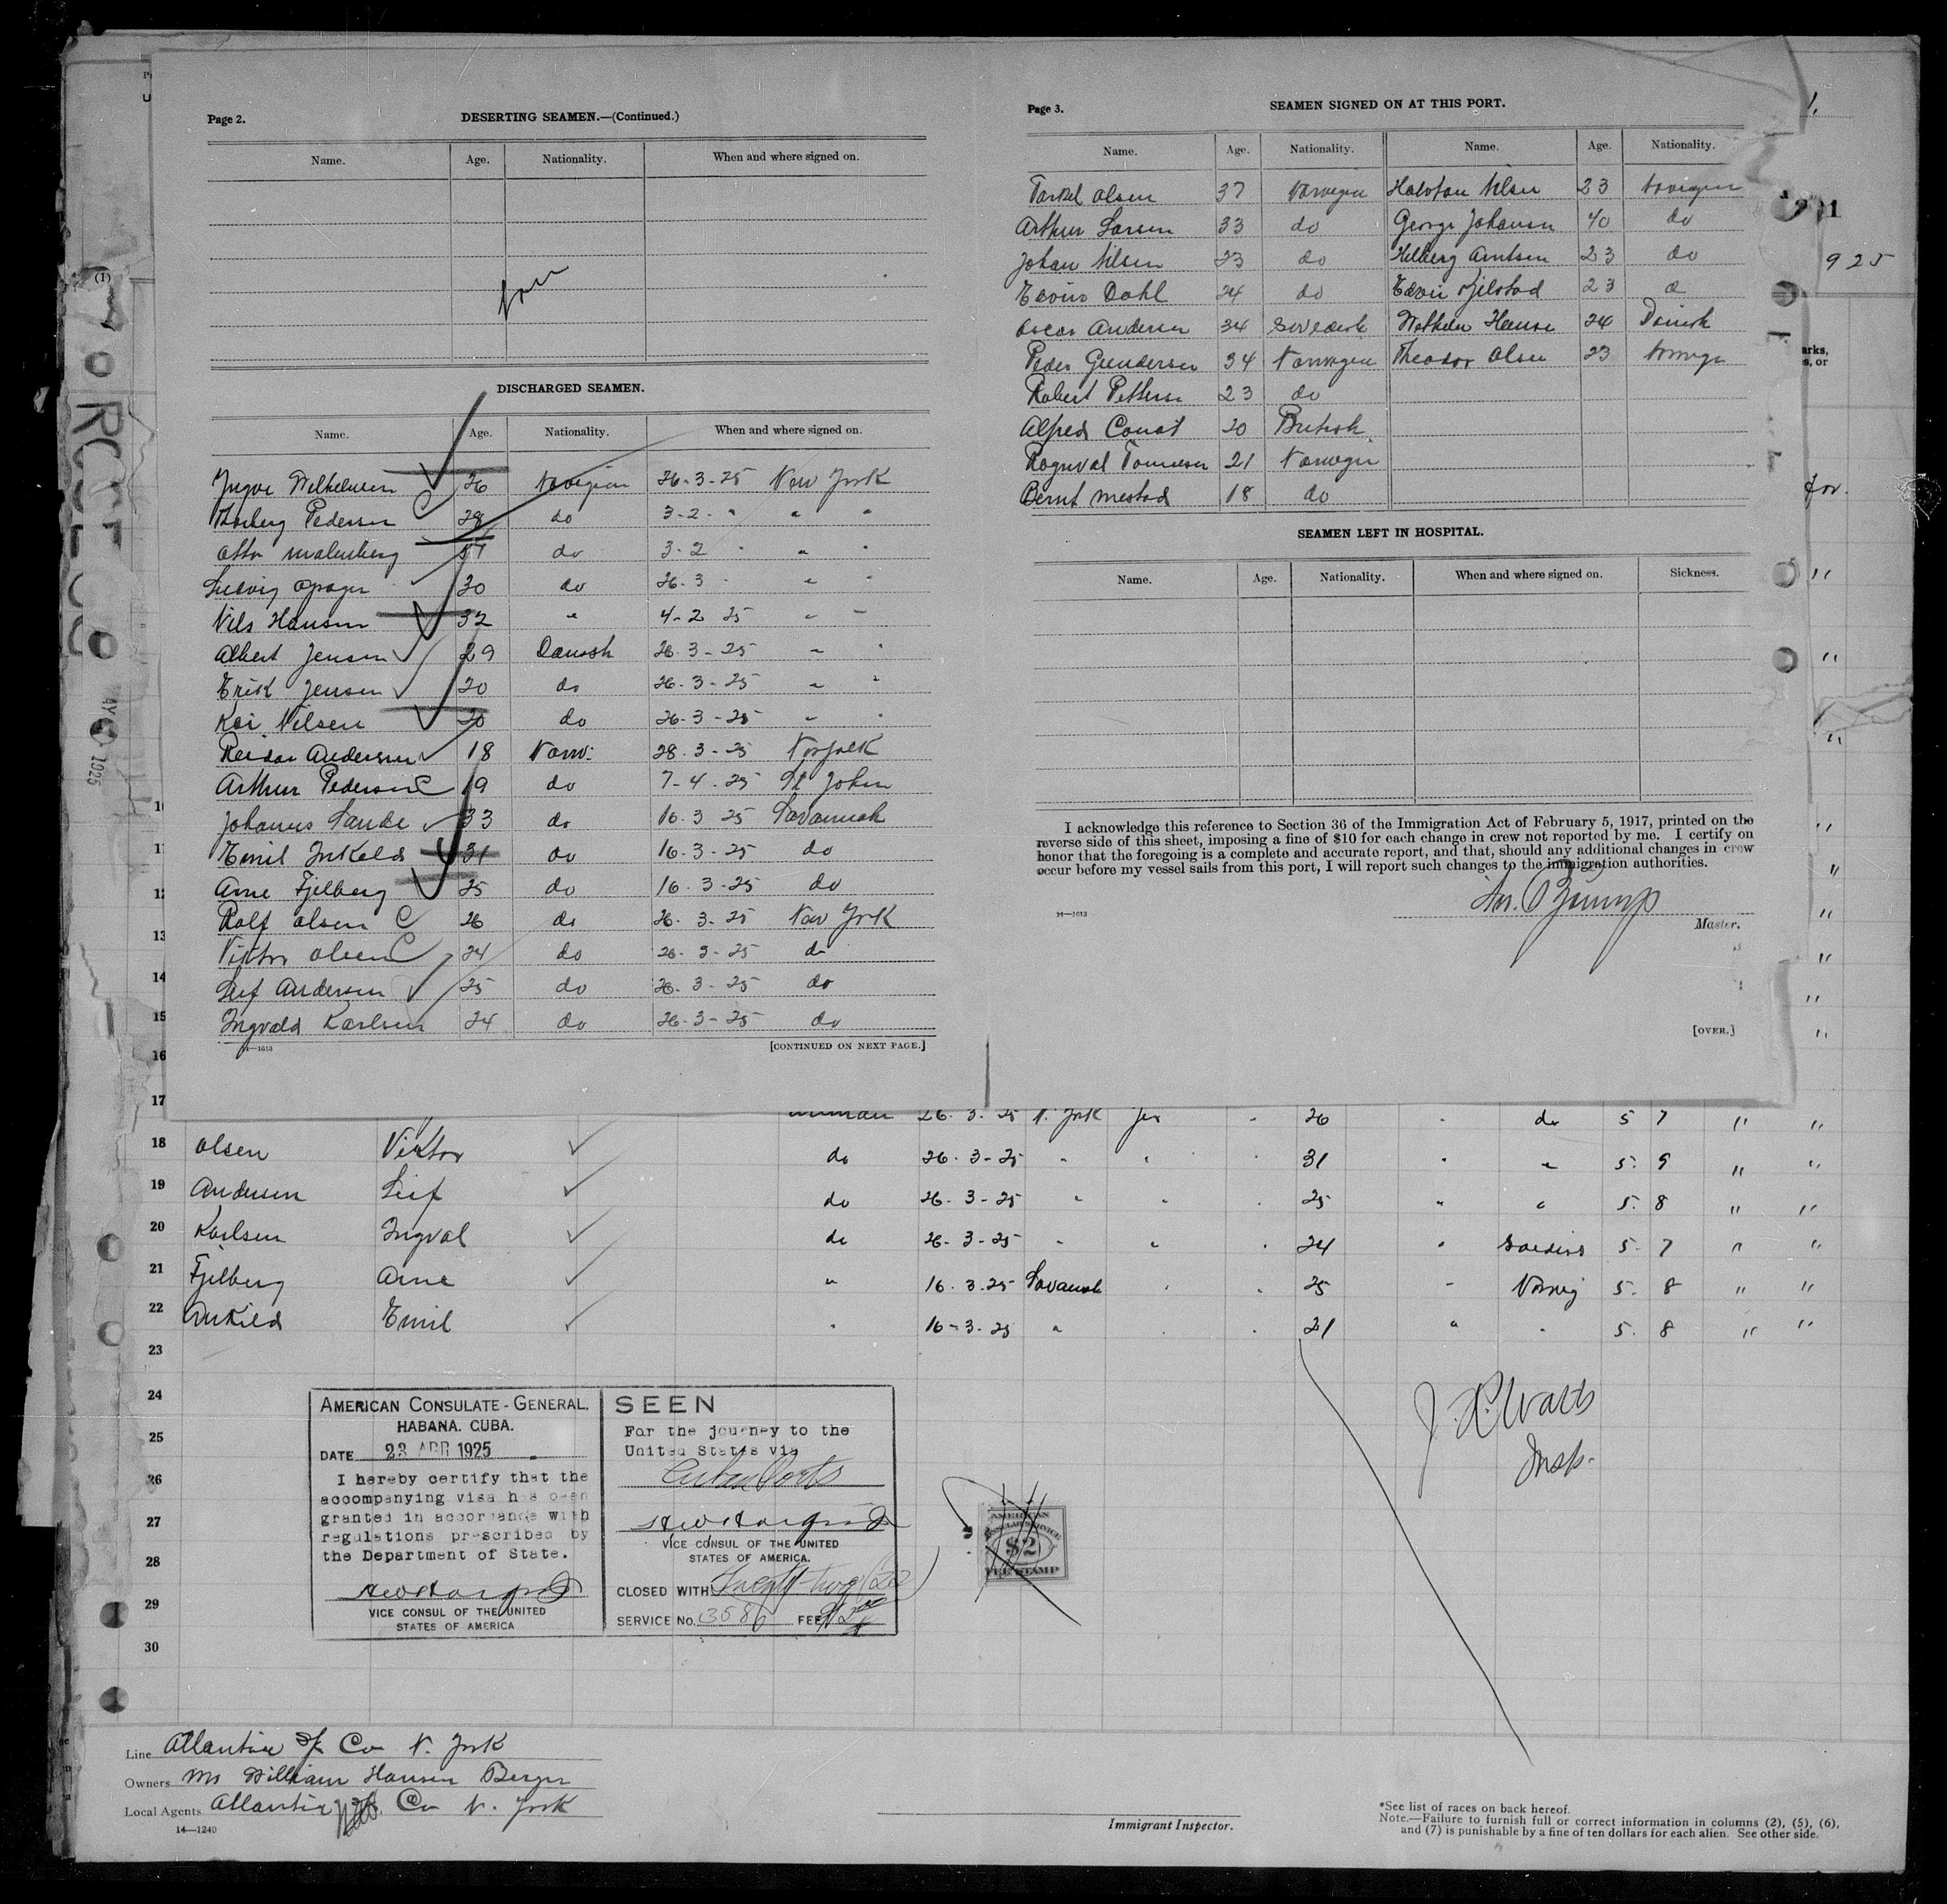 Page 2.
DESERTING SEAMEN.—(Continued.)
Name. Age. Nationality. When and where signed on.
DISCHARGED SEAMEN.
Name. Age. Nationality. When and where signed on.
Yngve Wilhelmsen 26 Norvegian 26-3-25 New York
Thorberg Pedersen C 28 do 3-2 - " " "
Otto Malmberg 57 do 3-2 " " "
Ludvig 30 do 26-3 " " "
Nils Hansen 32 " 4-2 25 " "
Albert Jensen 29 Danish 26-3-25 " "
Erik Jensen 20 do 26-3-25 " "
Kai Nilsen 20 do 26-3-25 " "
Reidar Andersen 18 Norw. 28-3-25 Norfolk
Arthur Pedersen C 19 do 7-4-25 St John
Johannes Sande 33 do 16-3 25 Savannah
Emil 31 do 16-3-25 do
Arne Fjelberg 25 do 16-3-25 do
Rolf Olsen C 26 do 26-3-25 New York
Viktor Olsen C 24 do 26-3-25 do
Leif Andersen 25 do 26-3-25 do
Ingvald Karlsen 24 do 26-3-25 do
14—1613
[CONTINUED ON NEXT PAGE.]
Page 3.
SEAMEN SIGNED ON AT THIS PORT.
Name. Age. Nationality. Name. Age. Nationality.
Torkel Olsen 37 Norvegian Halvfan Nilsen 23 Norvegian
Arthur Larsen 33 do George Johansen 40 do
Johan Nilsen 23 do Hilberg Arntsen 23 do
Edvin Dahl 24 do Edvin Fjelstad 23
Oscar Andersen 34 Swedish Hansen 24 Danish
Peder Gundersen 34 Norvegian Theodor Olsen 23
Robert Pettersen 23 do
Alfred 20 British
Rognval Tonnesen 21 Norvegian
Bernt Mestad 18 do
SEAMEN LEFT IN HOSPITAL.
Name. Age. Nationality. When and where signed on. Sickness.
I acknowledge this reference to Section 36 of the Immigration Act of February 5, 1917, printed on the
reverse side of this sheet, imposing a fine of $10 for each change in crew not reported by me. I certify on
honor that the foregoing is a complete and accurate report, and that, should any additional changes in crew
occur before my vessel sails from this port, I will report such changes to the immigration authorities.
14—1613
Master.
[OVER.]
925
arks,
s, or
for.
10
11
12
13
14
15
16
17 26. 3. 25 N. York Yes 26 do 5 7 " "
18 Olsen Viktor do 26-3-25 " " 31 " " 5. 9 " "
19 Andersen Leif do 26-3-25 " " 25 " " 5. 8 " "
20 Karlsen Ingval do 26-3-25 " " 24 " 5. 7 " "
21 Fjelberg Arne " 16.3.25 Savanah 25 " Norveg 5. 8 " "
22 Emil " 16-3-25 " 21 " " 5. 8 " "
23
24
25
26
27
28
29
30
AMERICAN CONSULATE-GENERAL.
HABANA. CUBA.
DATE 23 APR 1925
I hereby certify that the
accompanying visa has been
granted in accordance with
regulations prescribed by
the Department of State.
VICE CONSUL OF THE UNITED
STATES OF AMERICA
SEEN
For the journey to the
United States via
Cuban Ports
VICE CONSUL OF THE UNITED
STATES OF AMERICA.
CLOSED WITH Twenty-two (22)
SERVICE No. 3586 FEE $2
AMERICAN
CONSULAR SERVICE
$2
FEE STAMP
Insp.
Line Atlantic Co N. York
Owners Mr William Hansen Bergen
Local Agents Atlantic Co N. York
14—1240
Immigrant Inspector.
*See list of races on back hereof.
Note.—Failure to furnish full or correct information in columns (2), (5), (6),
and (7) is punishable by a fine of ten dollars for each alien. See other side.